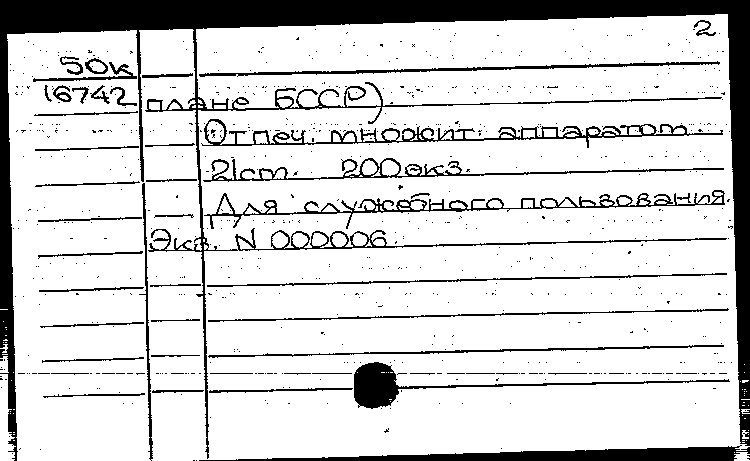 2
50к
16742 плане БССР).
Отпеч. множит. аппаратом.
21ст. 200экз.
Для служебного пользования.
Экз. N 000006.